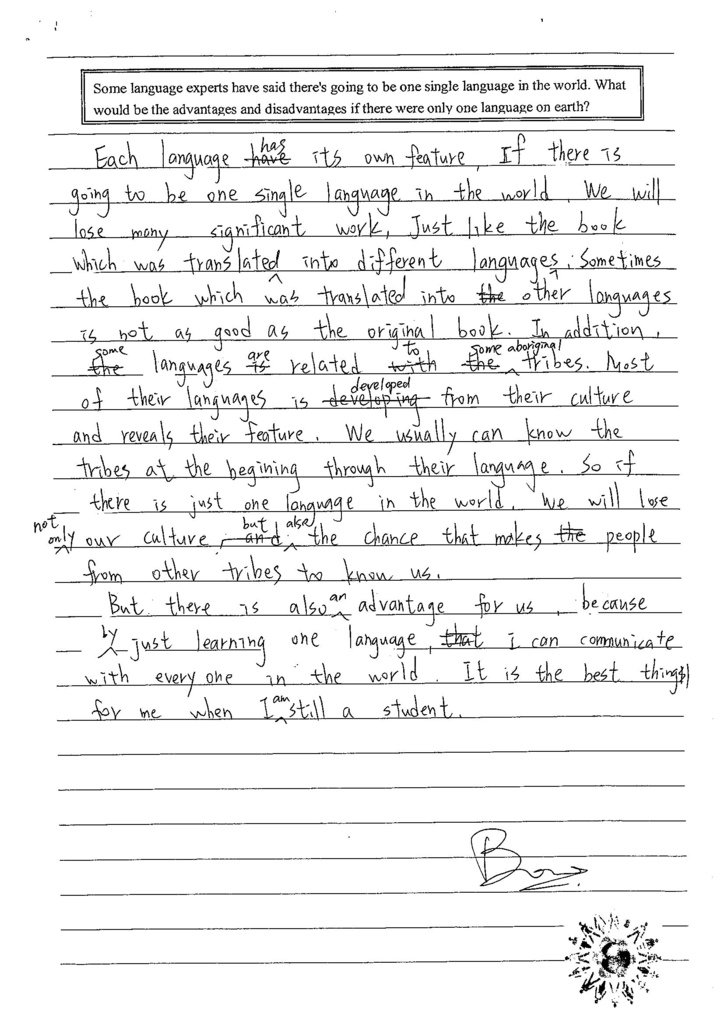 Some language experts have said there's going to be one single language in the world. What
would be the advantages and disadvantages if there were only one language on earth?
has
Each language have its own feature, If there is
going to be one single language in the world. We will
lose many significant work, Just like the book
which was translated into different languages, Sometimes
the book which was translated into the other languages
is not as good as the original book. In addition,
some are to some aboriginal
the languages is related with the tribes. Most
developed
of their languages is developing from their culture
and reveals their feature. We usually can know the
tribes at the begining through their language. So if
there is just one language in the world. We will lose
not but also
only our culture, and the chance that makes the people
from other tribes to know us.
an
But there is also advantage for us, because
by just learning one language, that I can communicate
with every one in the world. It is the best things
am
for me when I still a student.